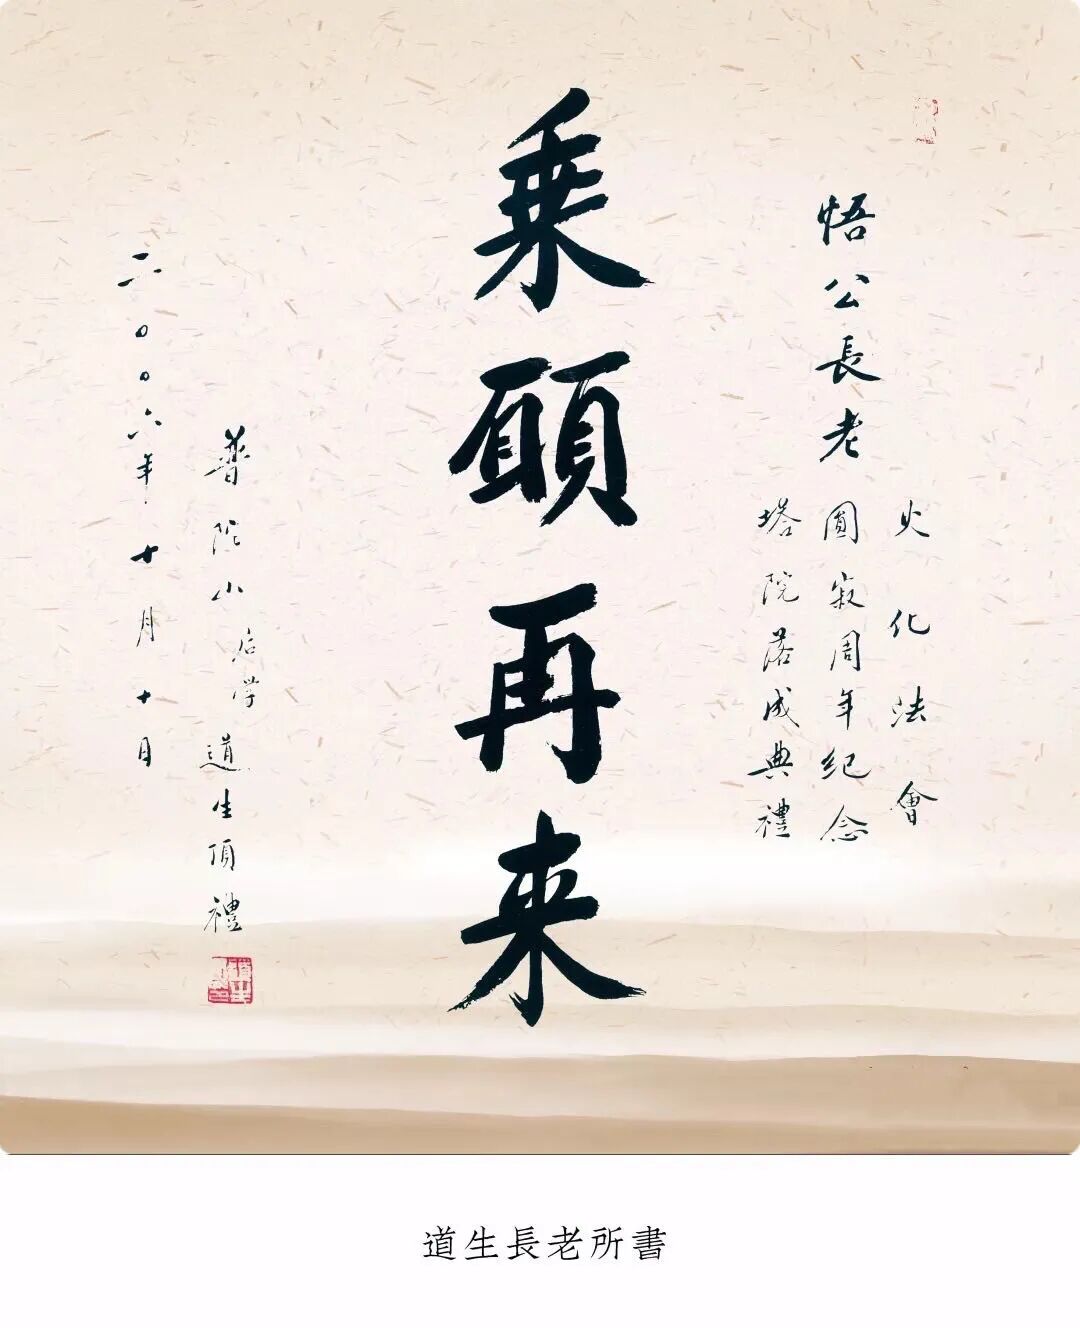 悟公長老
火化法會
圓寂周年纪念
塔院落成典禮
乗願再来
普陀山后学道生頂禮
二〇〇六年十月十日
道生長老所書